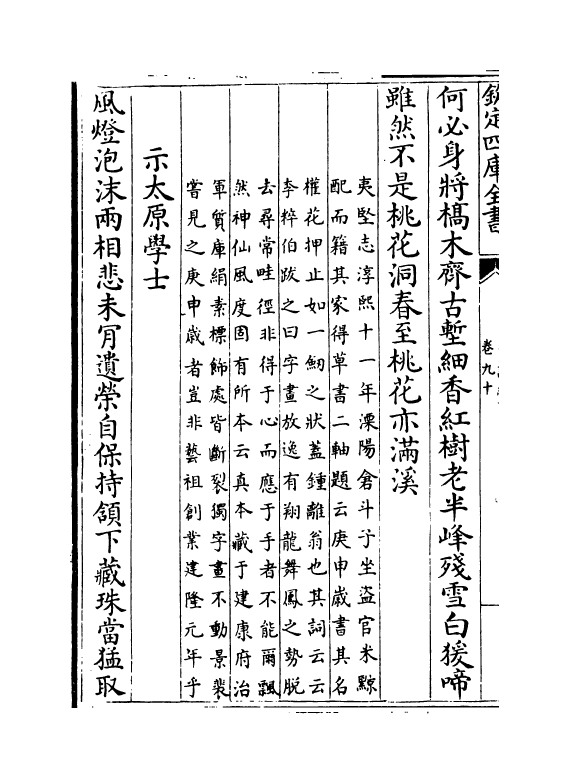 欽定四庫全書
卷九十
何必身將槁木齊古塹細香紅樹老半峰殘雪白猨啼
雖然不是桃花洞春至桃花亦滿溪
夷堅志淳熙十一年溧陽倉斗子坐盜官米黥
配而籍其家得草書二軸題云庚申歲書其名
權花押止如一劒之狀蓋鍾離翁也其詞云云
李粹伯跋之曰字畫放逸有翔龍舞鳳之勢脱
去尋常畦徑非得于心而應于手者不能爾飄
然神仙風度固有所本云真本藏于建康府治
軍資庫絹素標飾處皆斷裂獨字畫不動景裴
嘗見之庚申歲者豈非藝祖創業建隆元年乎
示太原學士
風燈泡沫兩相悲未肎遺榮自保持頷下藏珠當猛取